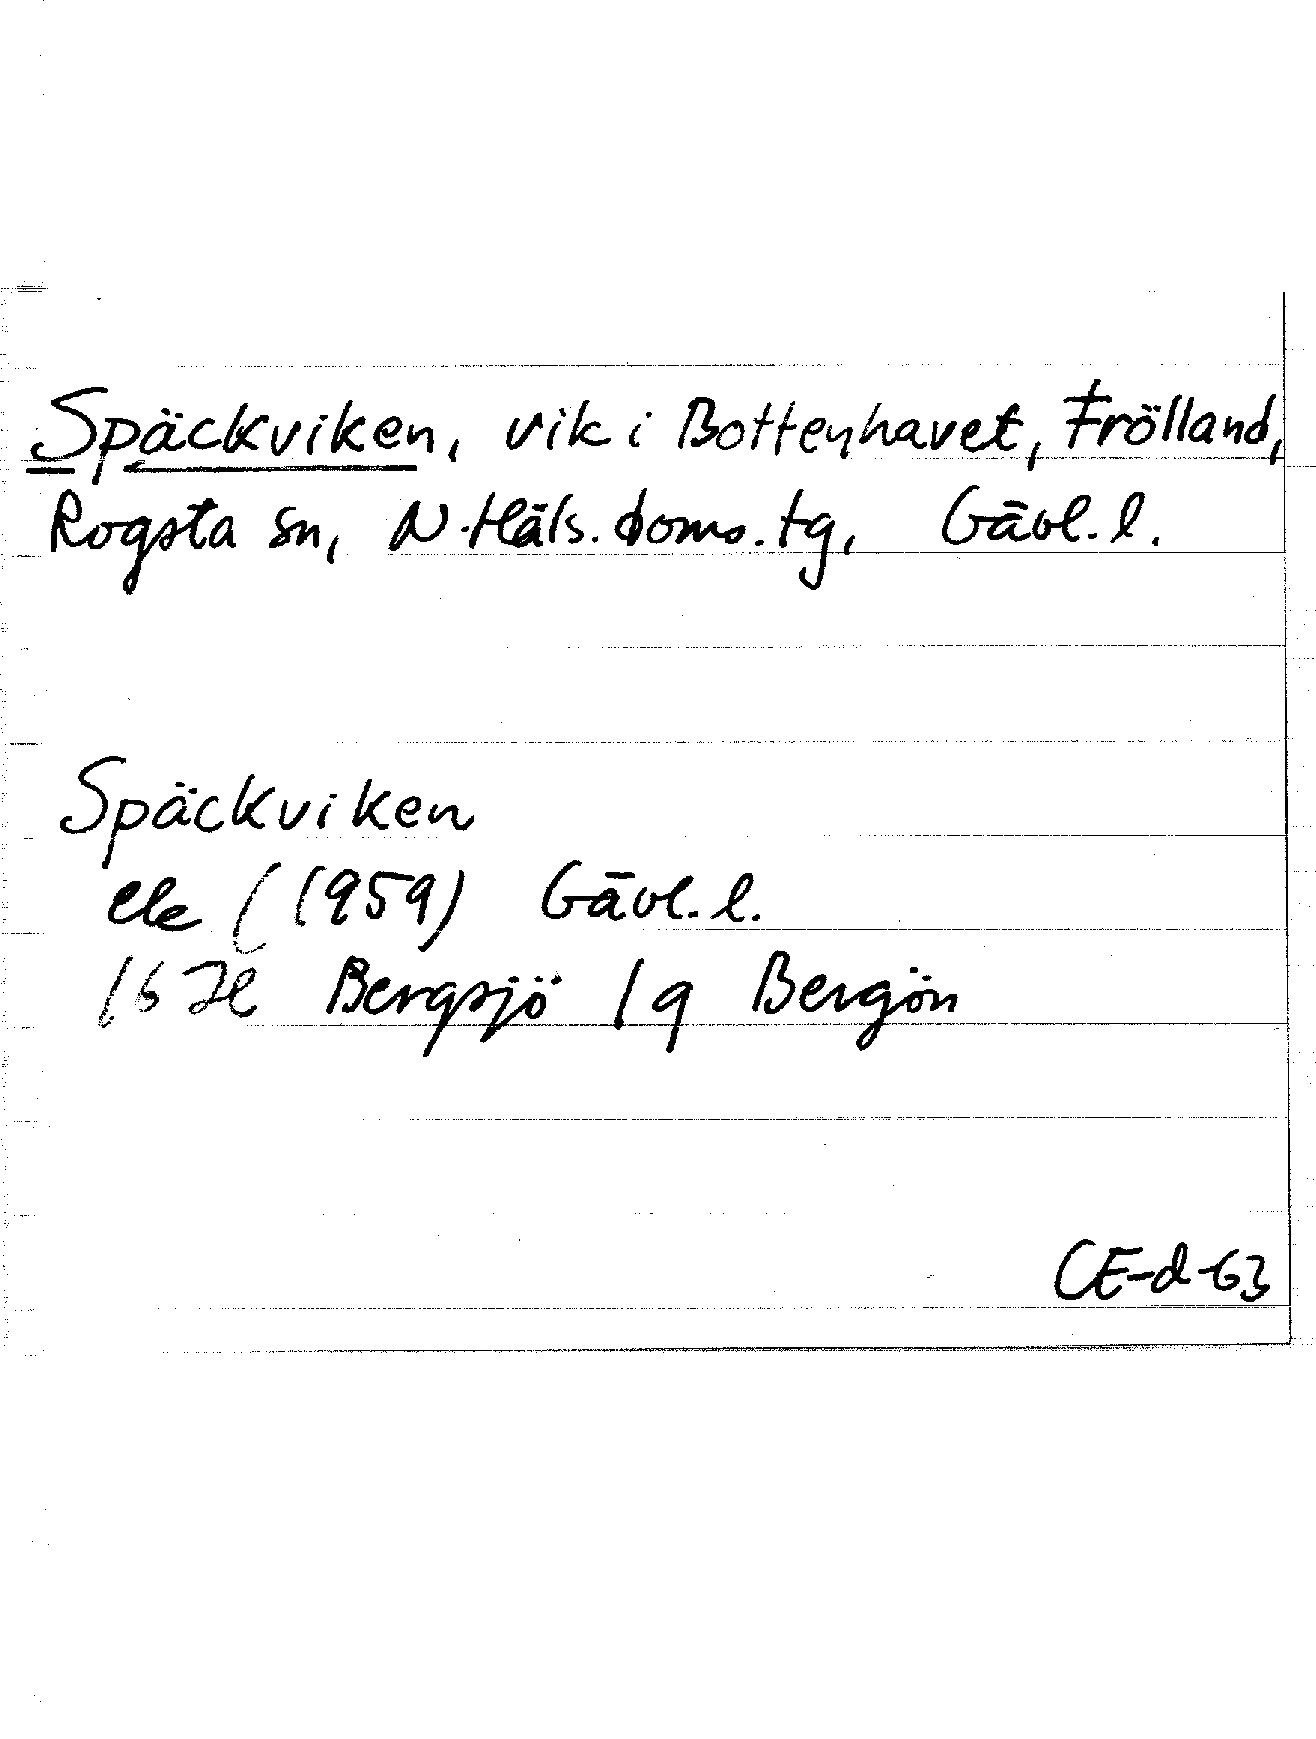 Späckviken, vik i Bottenhavet, Frölland,
Rogsta sn, N. Häls. doms. tg, Gävl. l.
Späckviken
ek (1959) Gävl. l.
16 H Bergsjö 1 g Bergön
CE-d-63